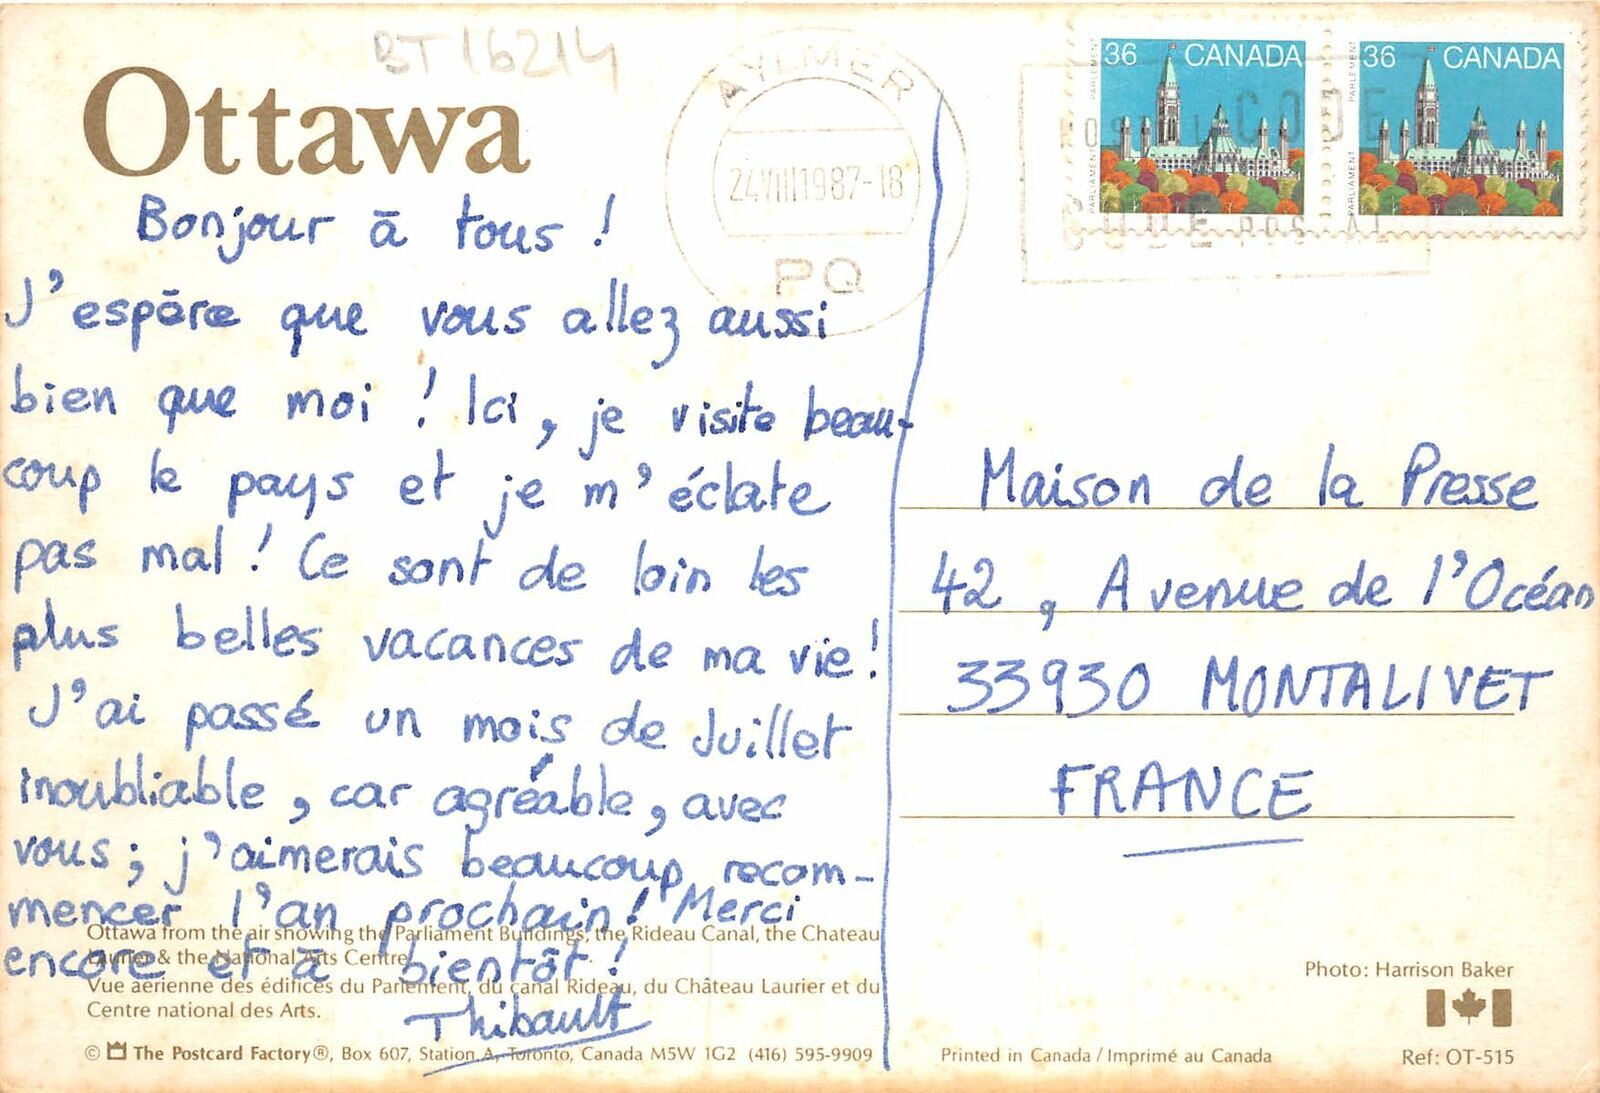 BT 16214
Ottawa
AYLMER
24 VIII 1987-18
PQ
36 CANADA
PARLEMENT
PARLIAMENT
36 CANADA
PARLEMENT
PARLIAMENT
POSTAL CODE
CODE POSTAL
Bonjour à tous !
J'espère que vous allez aussi
bien que moi ! Ici, je visite beau-
coup le pays et je m'éclate
pas mal ! Ce sont de loin les
plus belles vacances de ma vie !
J'ai passé un mois de Juillet
inoubliable, car agréable, avec
vous ; j'aimerais beaucoup recom-
mencer l'an prochain ! Merci
encore et à bientôt !
Thibault
Maison de la Presse
42, Avenue de l'Océan
33930 MONTALIVET
FRANCE
Ottawa from the air showing the Parliament Buildings, the Rideau Canal, the Chateau
Laurier & the National Arts Centre.
Vue aérienne des édifices du Parlement, du canal Rideau, du Château Laurier et du
Centre national des Arts.
© The Postcard Factory®, Box 607, Station A, Toronto, Canada M5W 1G2 (416) 595-9909
Printed in Canada / Imprimé au Canada
Photo: Harrison Baker
Ref: OT-515